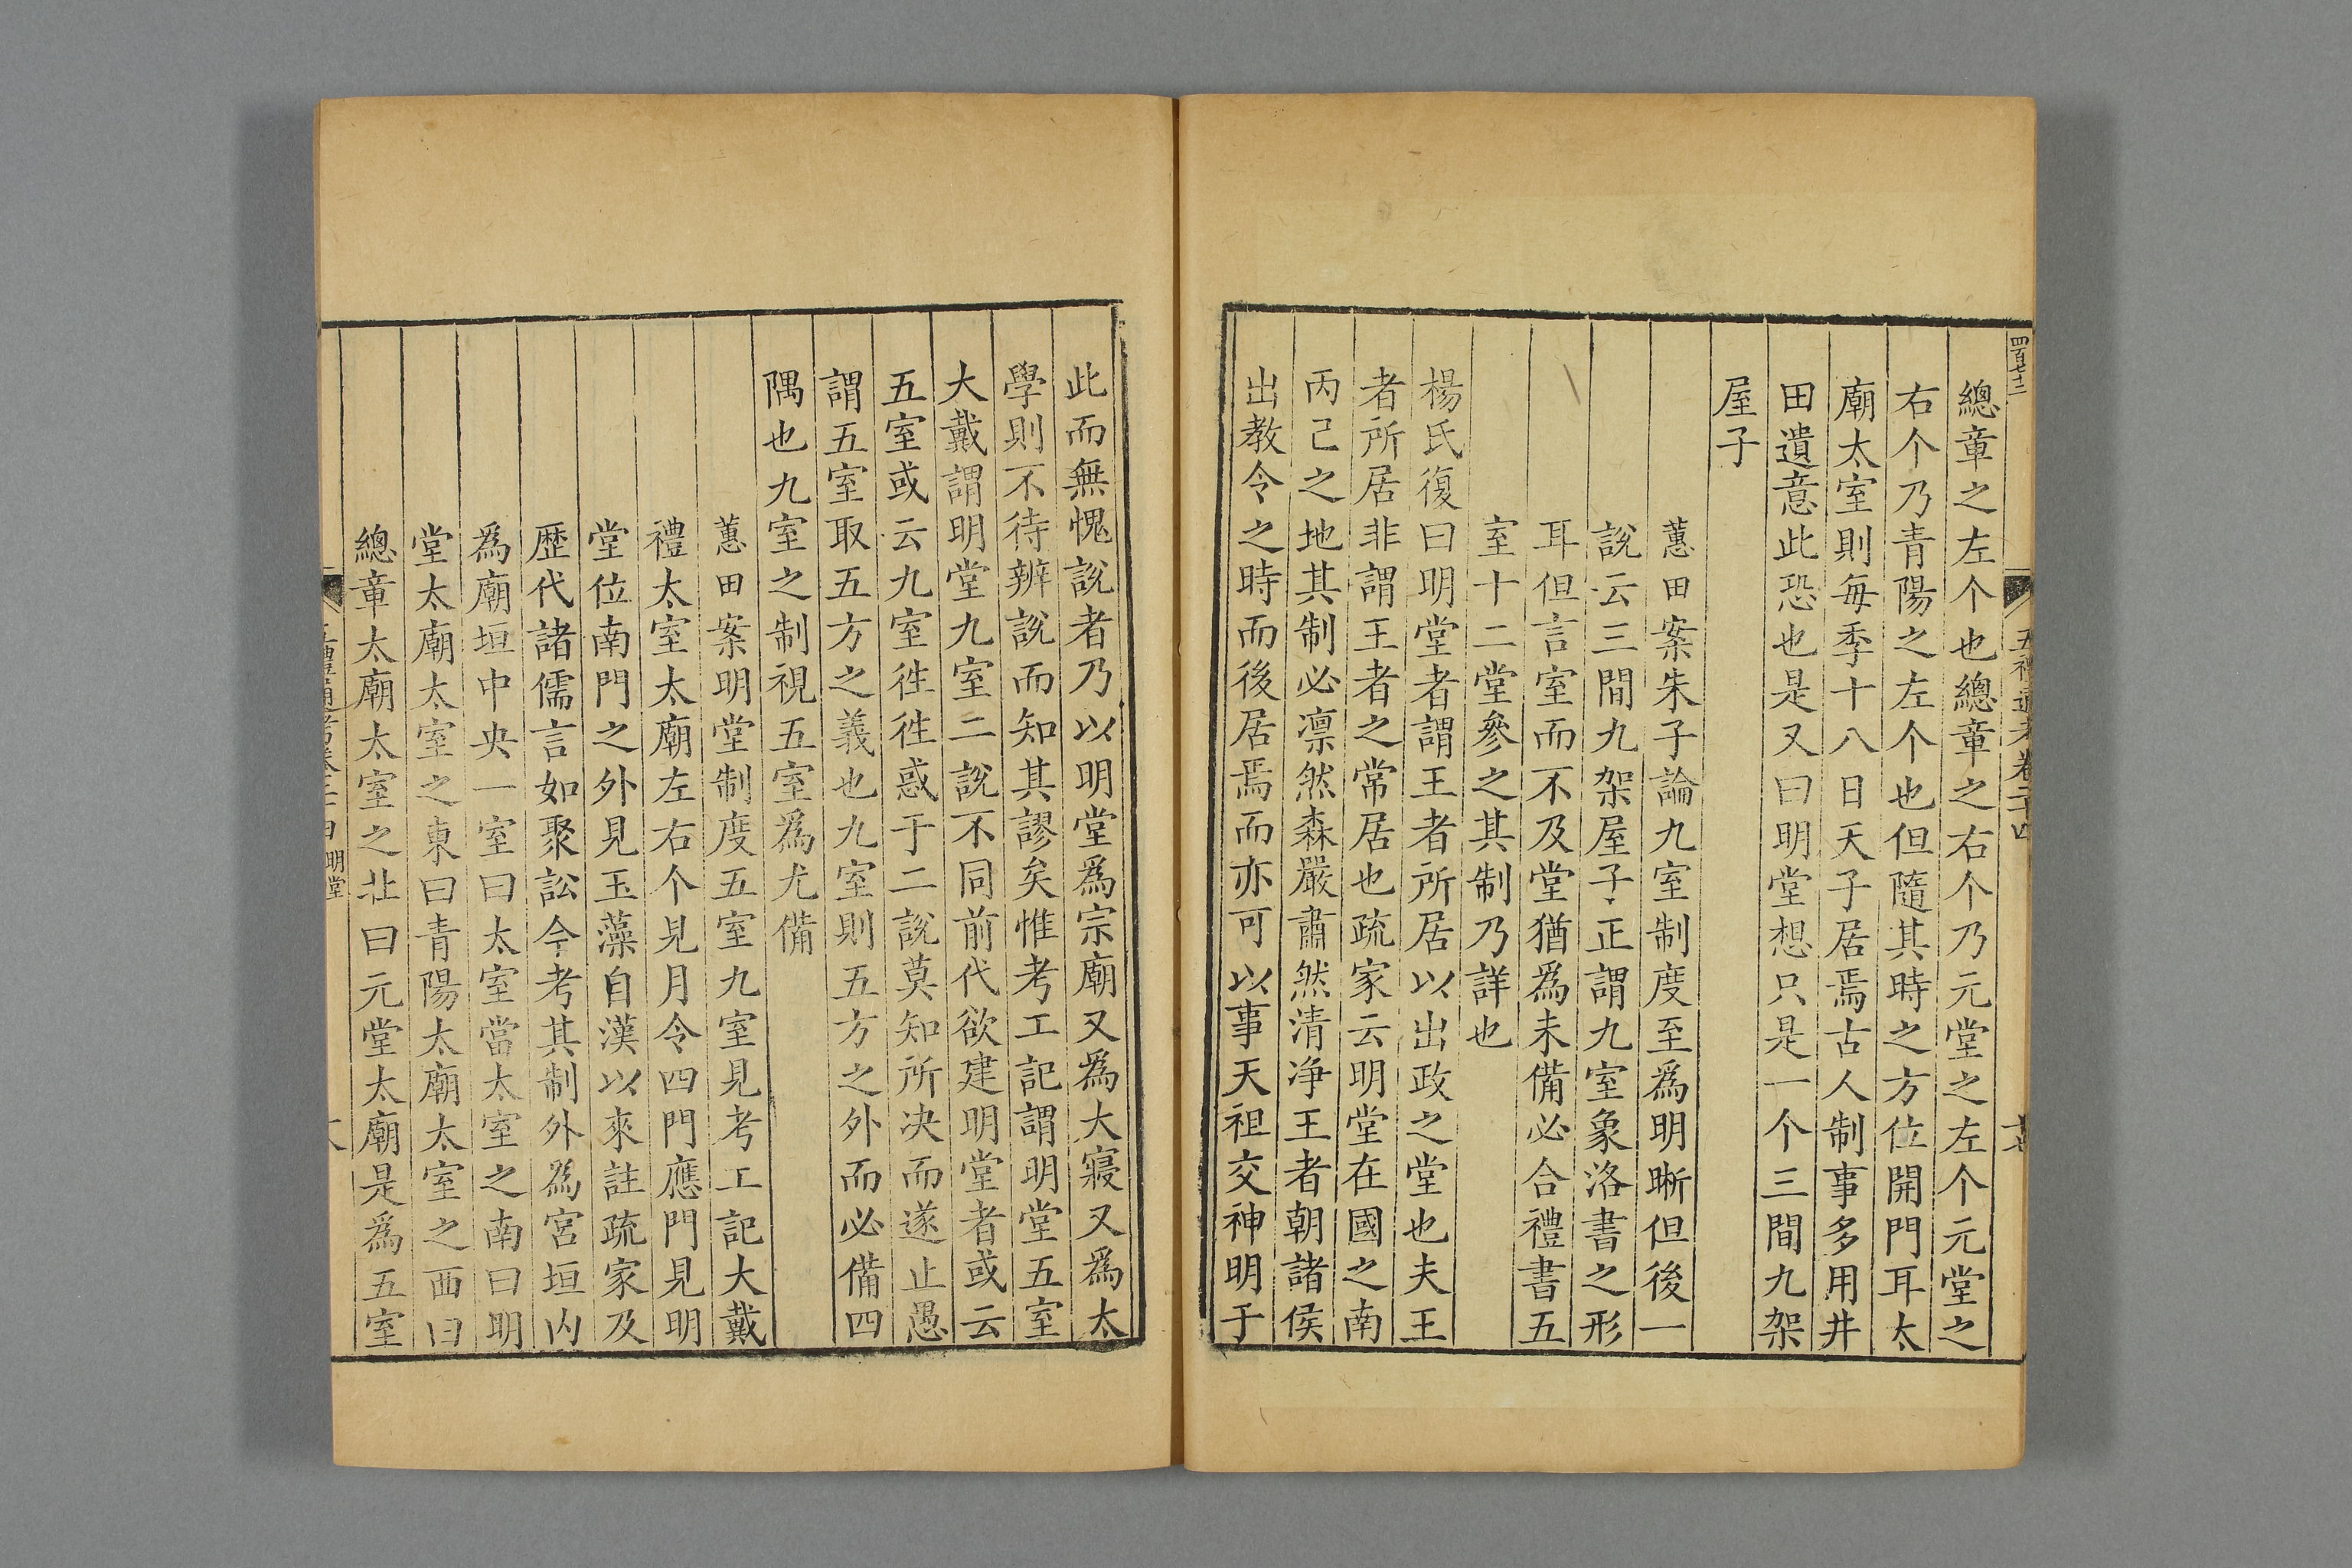 四百七十二
五禮通考卷二十四
十七
總章之左个也總章之右个乃元堂之左个元堂之
右个乃青陽之左个也但隨其時之方位開門耳太
廟太室則每季十八日天子居焉古人制事多用井
田遺意此恐也是又曰明堂想只是一个三間九架
屋子
蕙田案朱子論九室制度至爲明晰但後一
說云三間九架屋子正謂九室象洛書之形
耳但言室而不及堂猶爲未備必合禮書五
室十二堂參之其制乃詳也
楊氏復曰明堂者謂王者所居以出政之堂也夫王
者所居非謂王者之常居也疏家云明堂在國之南
丙己之地其制必凛然森嚴肅然清净王者朝諸侯
出教令之時而後居焉而亦可以事天祖交神明于
此而無愧說者乃以明堂爲宗廟又爲大寢又爲太
學則不待辨說而知其謬矣惟考工記謂明堂五室
大戴謂明堂九室二說不同前代欲建明堂者或云
五室或云九室徃徃惑于二說莫知所决而遂止愚
謂五室取五方之義也九室則五方之外而必備四
隅也九室之制視五室爲尤備
蕙田案明堂制度五室九室見考工記大戴
禮太室太廟左右个見月令四門應門見明
堂位南門之外見玉藻自漢以來註疏家及
歷代諸儒言如聚訟今考其制外爲宮垣内
爲廟垣中央一室曰太室當太室之南曰明
堂太廟太室之東曰青陽太廟太室之西曰
總章太廟太室之北曰元堂太廟是爲五室
明堂